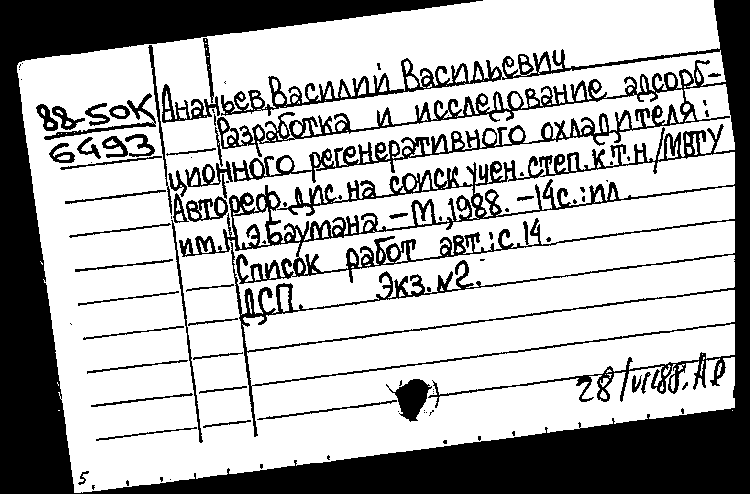 88-50К
6493
Ананьев, Василий Васильевич
Разработка и исследование адсорб-
ционного регенеративного охладителя:
Автореф. дис. на соиск. учен. степ. к.т.н. / МВТУ
им. Н.Э. Баумана. – М., 1988. – 14с.: ил.
Список работ авт.: с. 14.
ДСП. Экз. №2.
28/VI 88.
5.